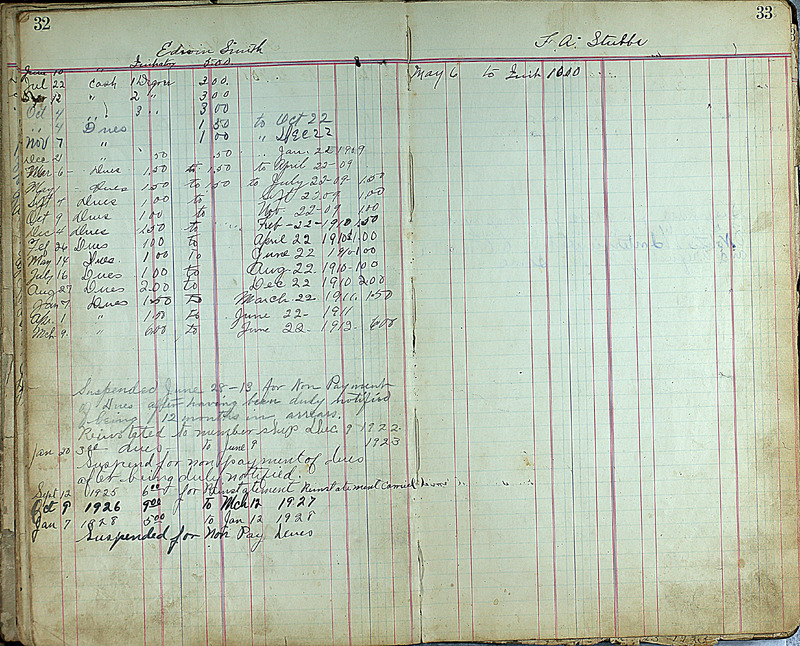 32
Edwin Smith
June 10 " 5.00
July 22 Cash 1 Degree 3.00
12 " 2 " 3.00
Oct 4 " 3 " 3.00
" 4 Dues 1.50 to Oct 22
Nov 7 " 1.00 " Dec 22
Dec 21 " .50 .50 " Jan. 22 1909
Mar 6 - Dues 1.50 to 1.50 to April 22-09
May 1 - Dues 1.50 to 1.50 to July 22-09 1.50
Sept 7 Dues 1.00 to Sept 22.09 1.00
Oct 9 Dues 1.00 to Nov. 22-09 1.00
Dec 4 Dues 1.50 to Feb-22-1910 1.50
Feb 26 Dues 1.00 to April 22 1910 1.00
May 14 Dues. 1.00 To June 22 1910 1.00
July 16 Dues 1.00 to Aug-22. 1910-1.00
Aug 27 Dues 2.00 to Dec 22 1910 2.00
Jan 7 Dues 1.50 to March-22 1911. 1.50
Apr. 1 " 1.50 to June 22- 1911
Mch 9. " 6.00 to June 22- 1912- 6.00
Suspended June 28-13 for Non Payment
of Dues after having been duly notified
of being 12 months in arrears.
Reinstated to membership Dec 9 1922
Jan 20 dues. To June 9 1923
Suspend for non payment of dues
after being duly notified.
Sept 12 1925 6.00 for Reinstatement Reinstatement Carried
Oct 9 1926 9.00 To Mch 12 1927
Jan 7 1928 5.00 To Jan 12 1928
Suspended for Non Pay Dues
33
F. A. Stubbe
May 6 to 10.00